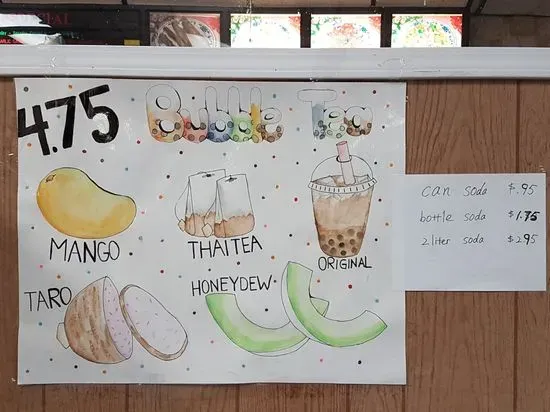 4.75
Bubble Tea
MANGO
THAI TEA
ORIGINAL
TARO
HONEYDEW
can soda $.95
bottle soda $1.75
2 liter soda $2.95